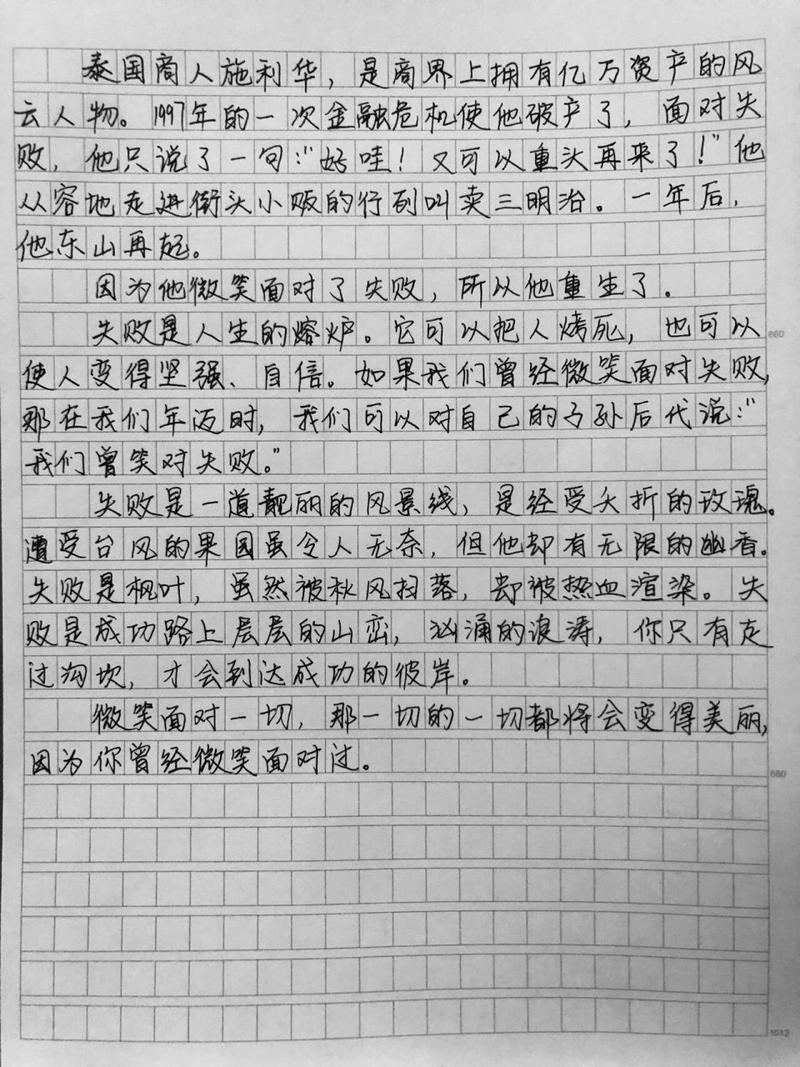 泰国商人施利华，是商界上拥有亿万资产的风
云人物。1997年的一次金融危机使他破产了，面对失
败，他只说了一句：“好哇！又可以重头再来了！”他
从容地走进街头小贩的行列叫卖三明治。一年后，
他东山再起。
因为他微笑面对了失败，所以他重生了。
失败是人生的熔炉。它可以把人烤死，也可以
使人变得坚强、自信。如果我们曾经微笑面对失败，
那在我们年迈时，我们可以对自己的子孙后代说：“
我们曾笑对失败。”
失败是一道靓丽的风景线，是经受夭折的玫瑰。
遭受台风的果园虽令人无奈，但他却有无限的幽香。
失败是枫叶，虽然被秋风扫落，却被热血渲染。失
败是成功路上层层的山峦，汹涌的浪涛，你只有走
过沟坎，才会到达成功的彼岸。
微笑面对一切，那一切的一切都将会变得美丽，
因为你曾经微笑面对过。
660
880
1012